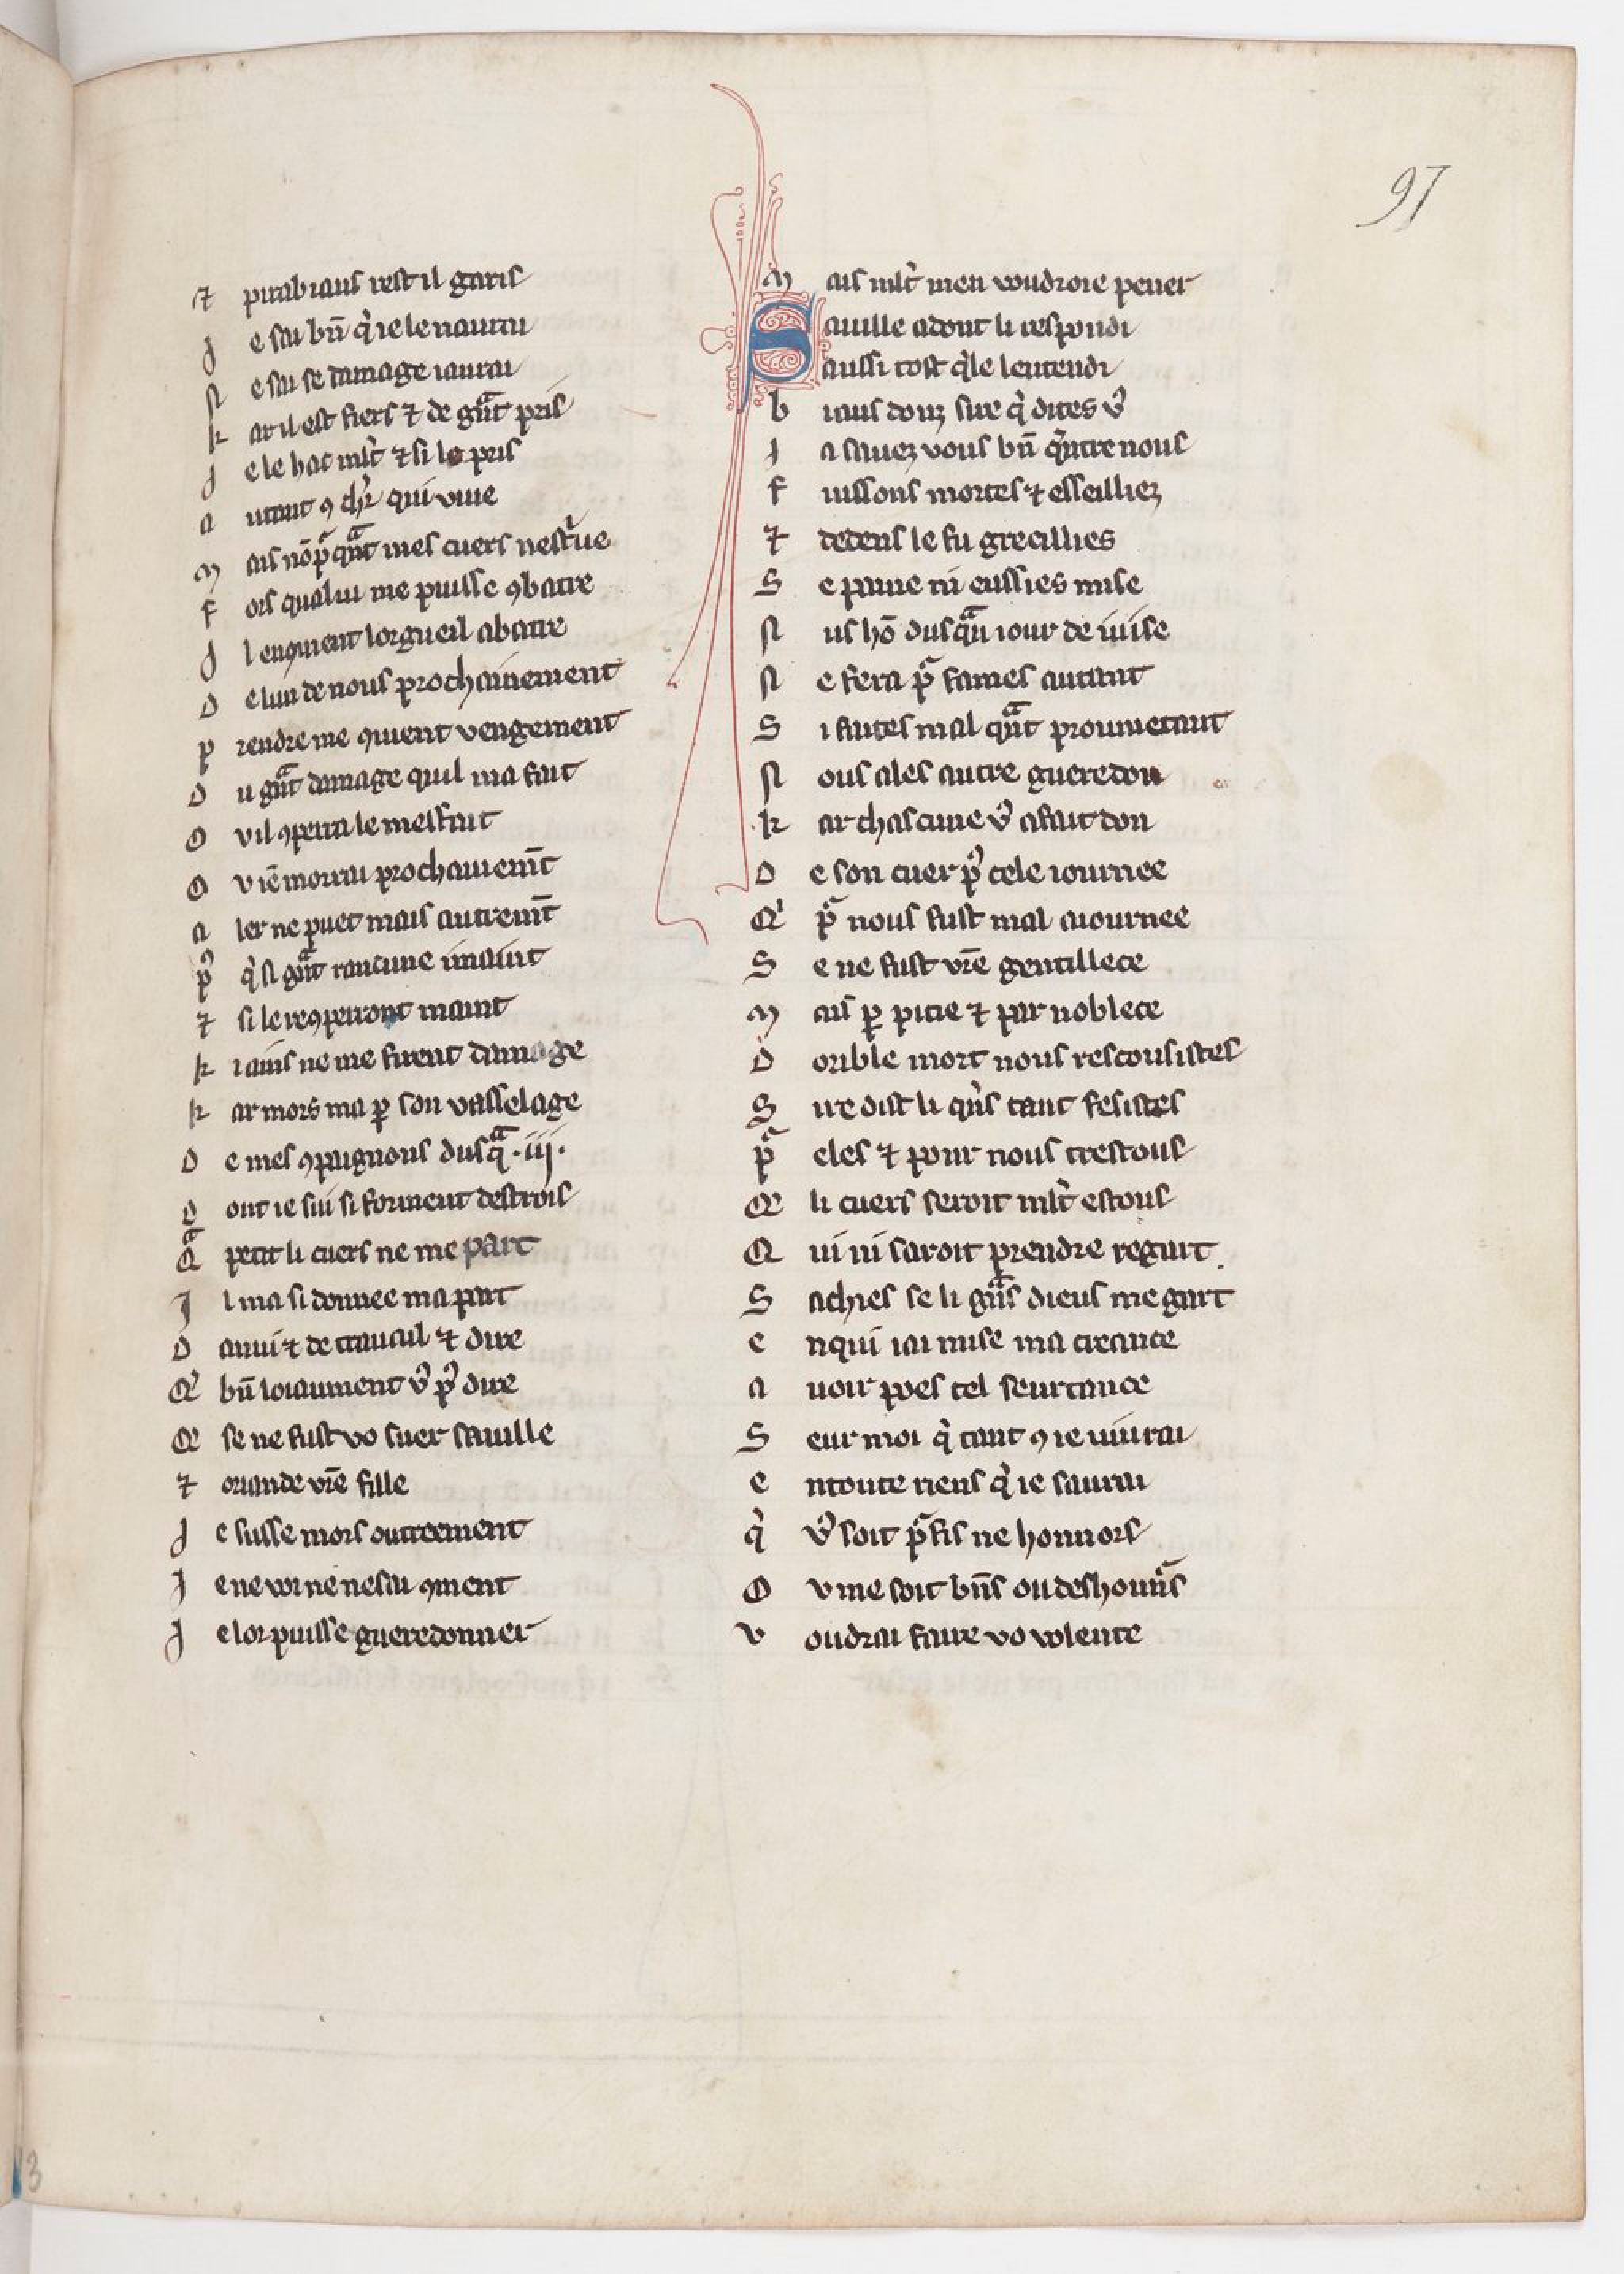 97
⁊ pirabiaus rest il garis
J e sai bn̄ q̇ ie le naurai
N e sai se damage iaurai
K ar il est fiers ⁊ de gᵃ̄t pris
J e le hac ml̄t ⁊ si le pris
A utant ꝯ ch̄r qui viue
M ais nōp̄qᵃ̄nt mes cuers nestᵢue
F ors qualui me puisse ꝯbatre
J l enꝯuient lorgueil abatre
D e lun de nous prochainement
P rendre me ꝯuient vengement
D u gᵃ̄t damage quil ma fait
O v il ꝯperra le mesfait
O v iē morrai prochainem̄t
A ler ne puet mais autrem̄t
P̾ q̇ si gᵃ̄t rancune imaint
⁊ si le reꝯperront maint
K i ains ne me firent damage
K ar mors ma ꝑ son vasselage
D e mes ꝯpaignons dusqᵃ .iij.
D ont ie sui si forment destrois
Qᵃ petit li cuers ne me part
J l ma si donnee ma part
D anui ⁊ de trauail ⁊ dire
Q̾ bn̄ loiaument v̾ p̾ dire
Q̾ se ne fust vo suer sauille
⁊ oriande vr̄e fille
J e fusse mors outreement
J e ne voi ne ne sai ꝯment
J e lor puisse gueredonner
M ais ml̄t men voudroie pener
S auille adont li respondi
aussi tost q̇le lentendi
B iaus douz sire q̇ dites v̾
J a sauez vous bn̄ q̇ntre nous
F uissons mortes ⁊ essillies
⁊ dedens le fu greillies
S e paine ni eussies mise
N us hō dusqᵃu iour de iuise
N e fera p̾ fames autant
S i faites mal qᵃ̄t proumetant
N ous ales autre gueredon
K ar chascune v̾ a fait don
D e son cuer p̾ cele iournee
Qⁱ p̾ nous fust mal aiournee
S e ne fust vr̄e gentillece
M ais ꝑ pitie ⁊ par noblece
D orible mort nous rescousistes
S ire dist li q̇ns tant fesistes
P̾ eles ⁊ pour nous trestous
Q̾ li cuers seroit ml̄t estous
Q ui ni saroit prendre regart
S achies se li gᵃ̄ns dieus me gart
E nqui iai mise ma creance
A uoir poes tel seurtance
S eur moi q̇ tant ꝯ ie uiurai
E ntoute riens q̇ ie saurai
Q̇ v̾ soit p̾fis ne honnors
O v me soit bn̄s ou deshoūrs
V oudrai faire vo volente